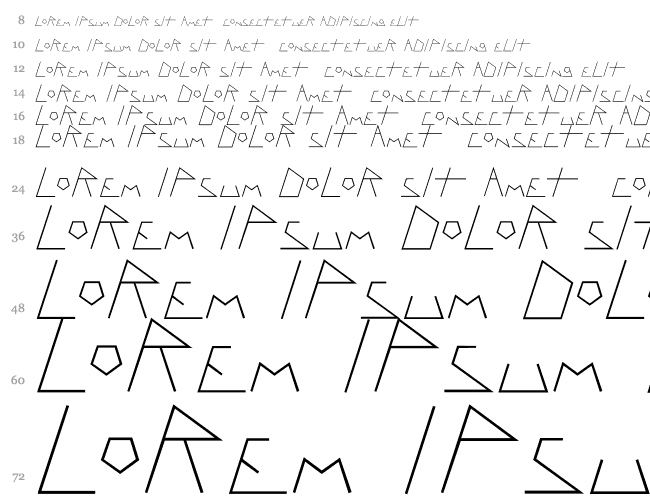 8 LoREm IPsum DoLoR sit AmEt consEctEtuER ADIPIscing ELit
10 LoREm IPsum DoLoR sit AmEt consEctEtuER ADIPIscing ELit
12 LoREm IPsum DoLoR sit AmEt consEctEtuER ADIPIscing ELit
14 LoREm IPsum DoLoR sit AmEt consEctEtuER ADIPIscin
16 LoREm IPsum DoLoR sit AmEt consEctEtuER AD
18 LoREm IPsum DoLoR sit AmEt consEctEtu
24 LoREm IPsum DoLoR sit AmEt co
36 LoREm IPsum DoLoR sit
48 LoREm IPsum DoL
60 LoREm IPsum
72 LoREm IPsu